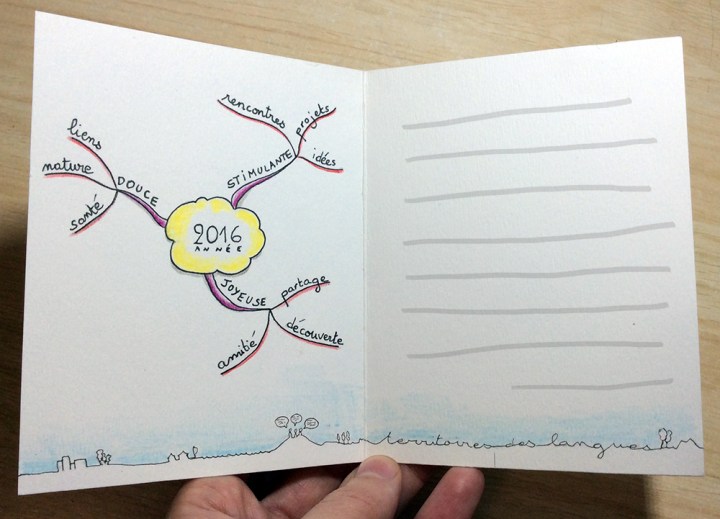 rencontres
projets
idées
STIMULANTE
liens
nature
santé
DOUCE
2016
ANNÉE
JOYEUSE
partage
découverte
amitié
territoires des langues